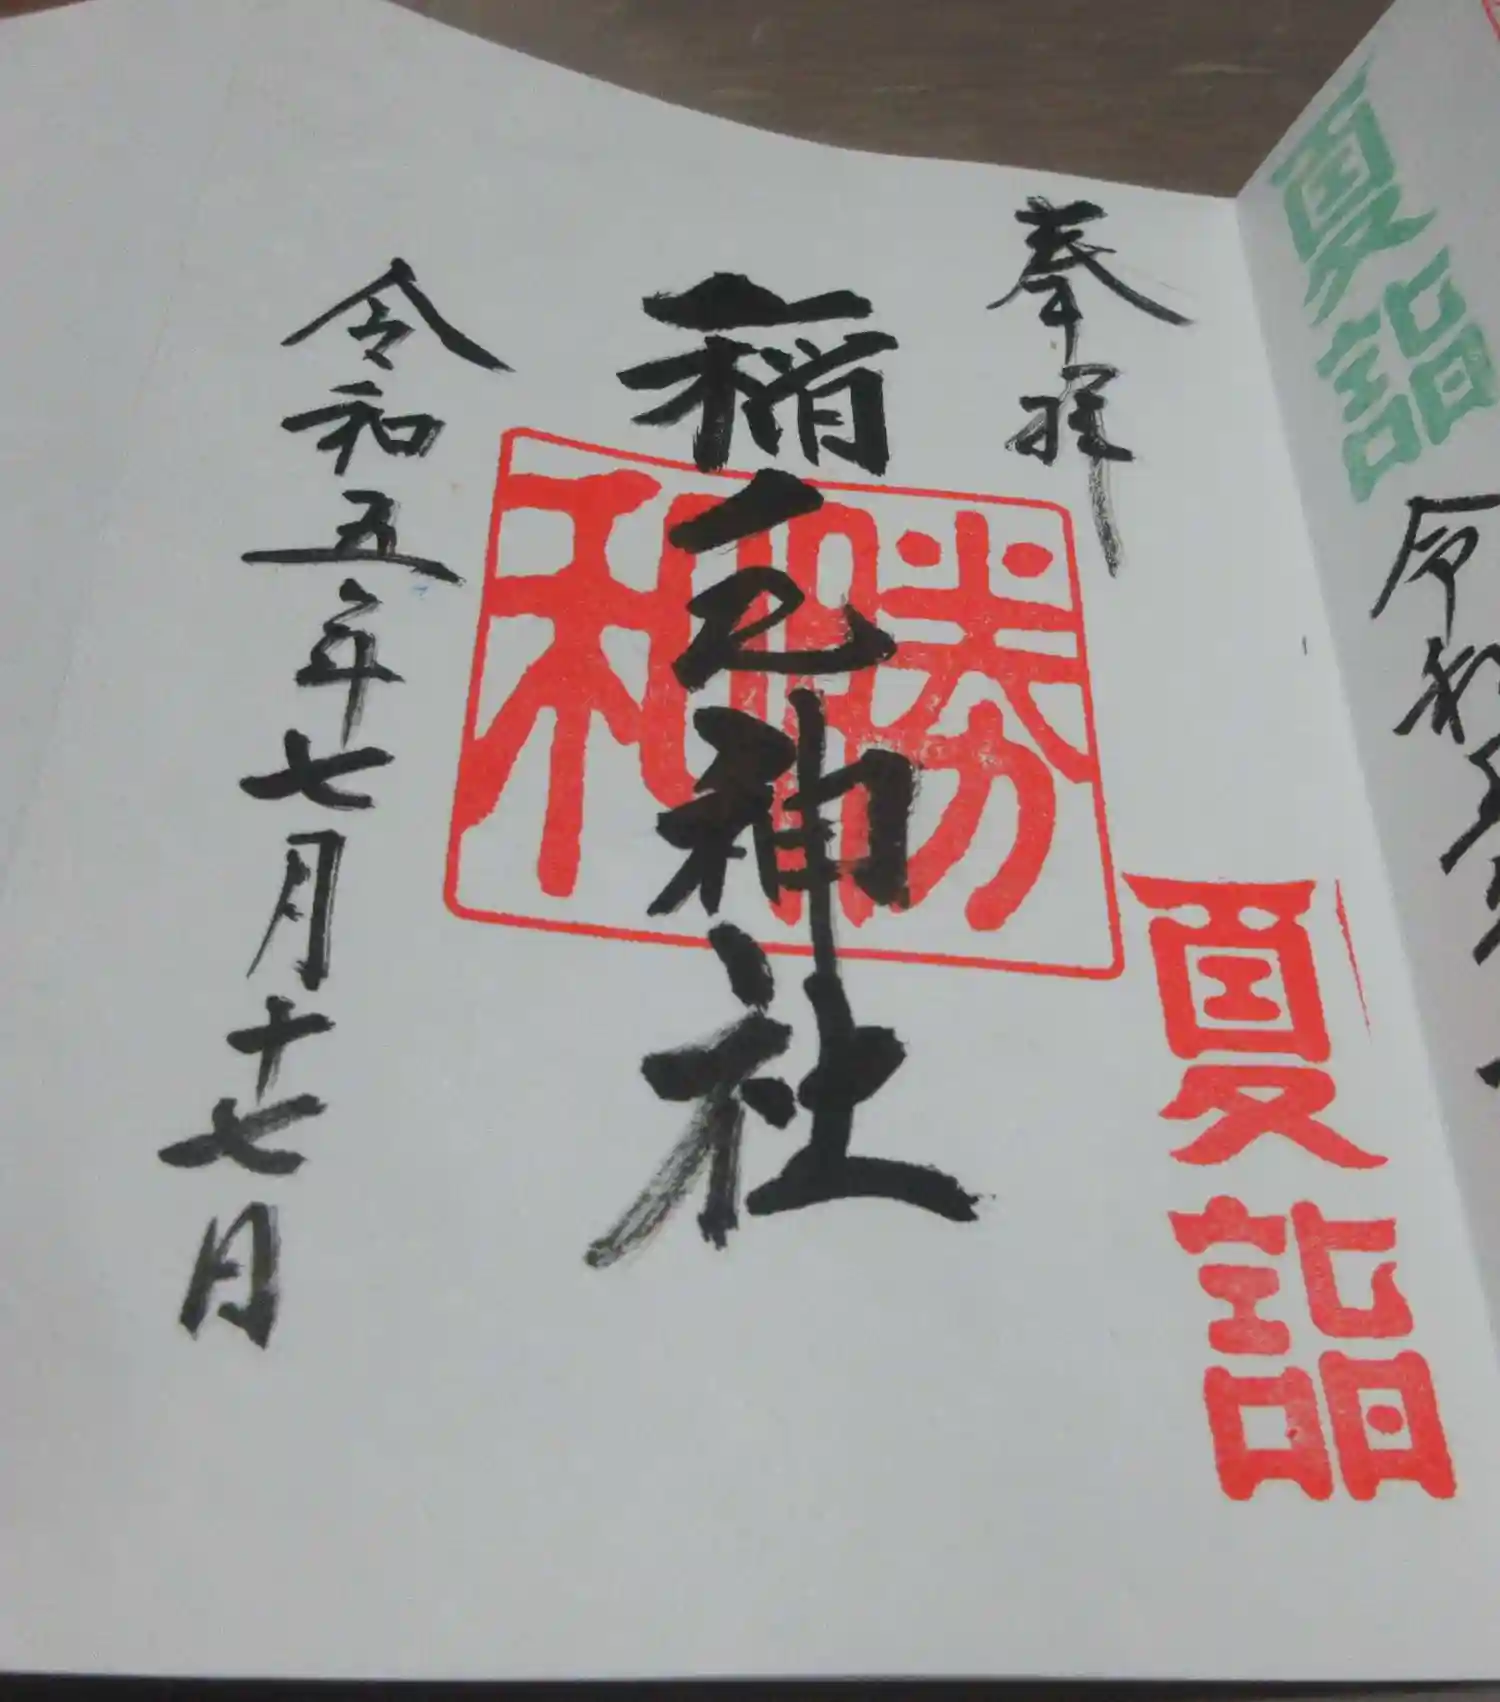 夏詣
令和
奉拝
夏詣
神社
勝
和
令和五年七月十七日